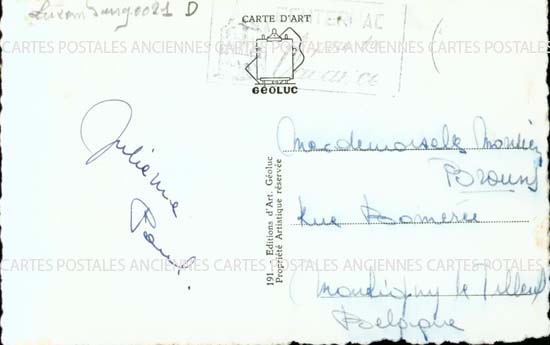 Luxembourg0021 D
CARTE D'ART
GÉOLUC
CARTES POSTALES ANCIENNES CARTES POSTALES ANCIENNES CARTES POSTALES
Julienne
Paul.
191. Editions d'Art. Géoluc
Propriété Artistique réservée
Mademoiselle Monsieur
Brouns
Rue
CARTES POSTALES ANCIENNES CARTES POSTALES ANCIENNES CARTES POSTALES
Montigny le Tilleul
Belgique